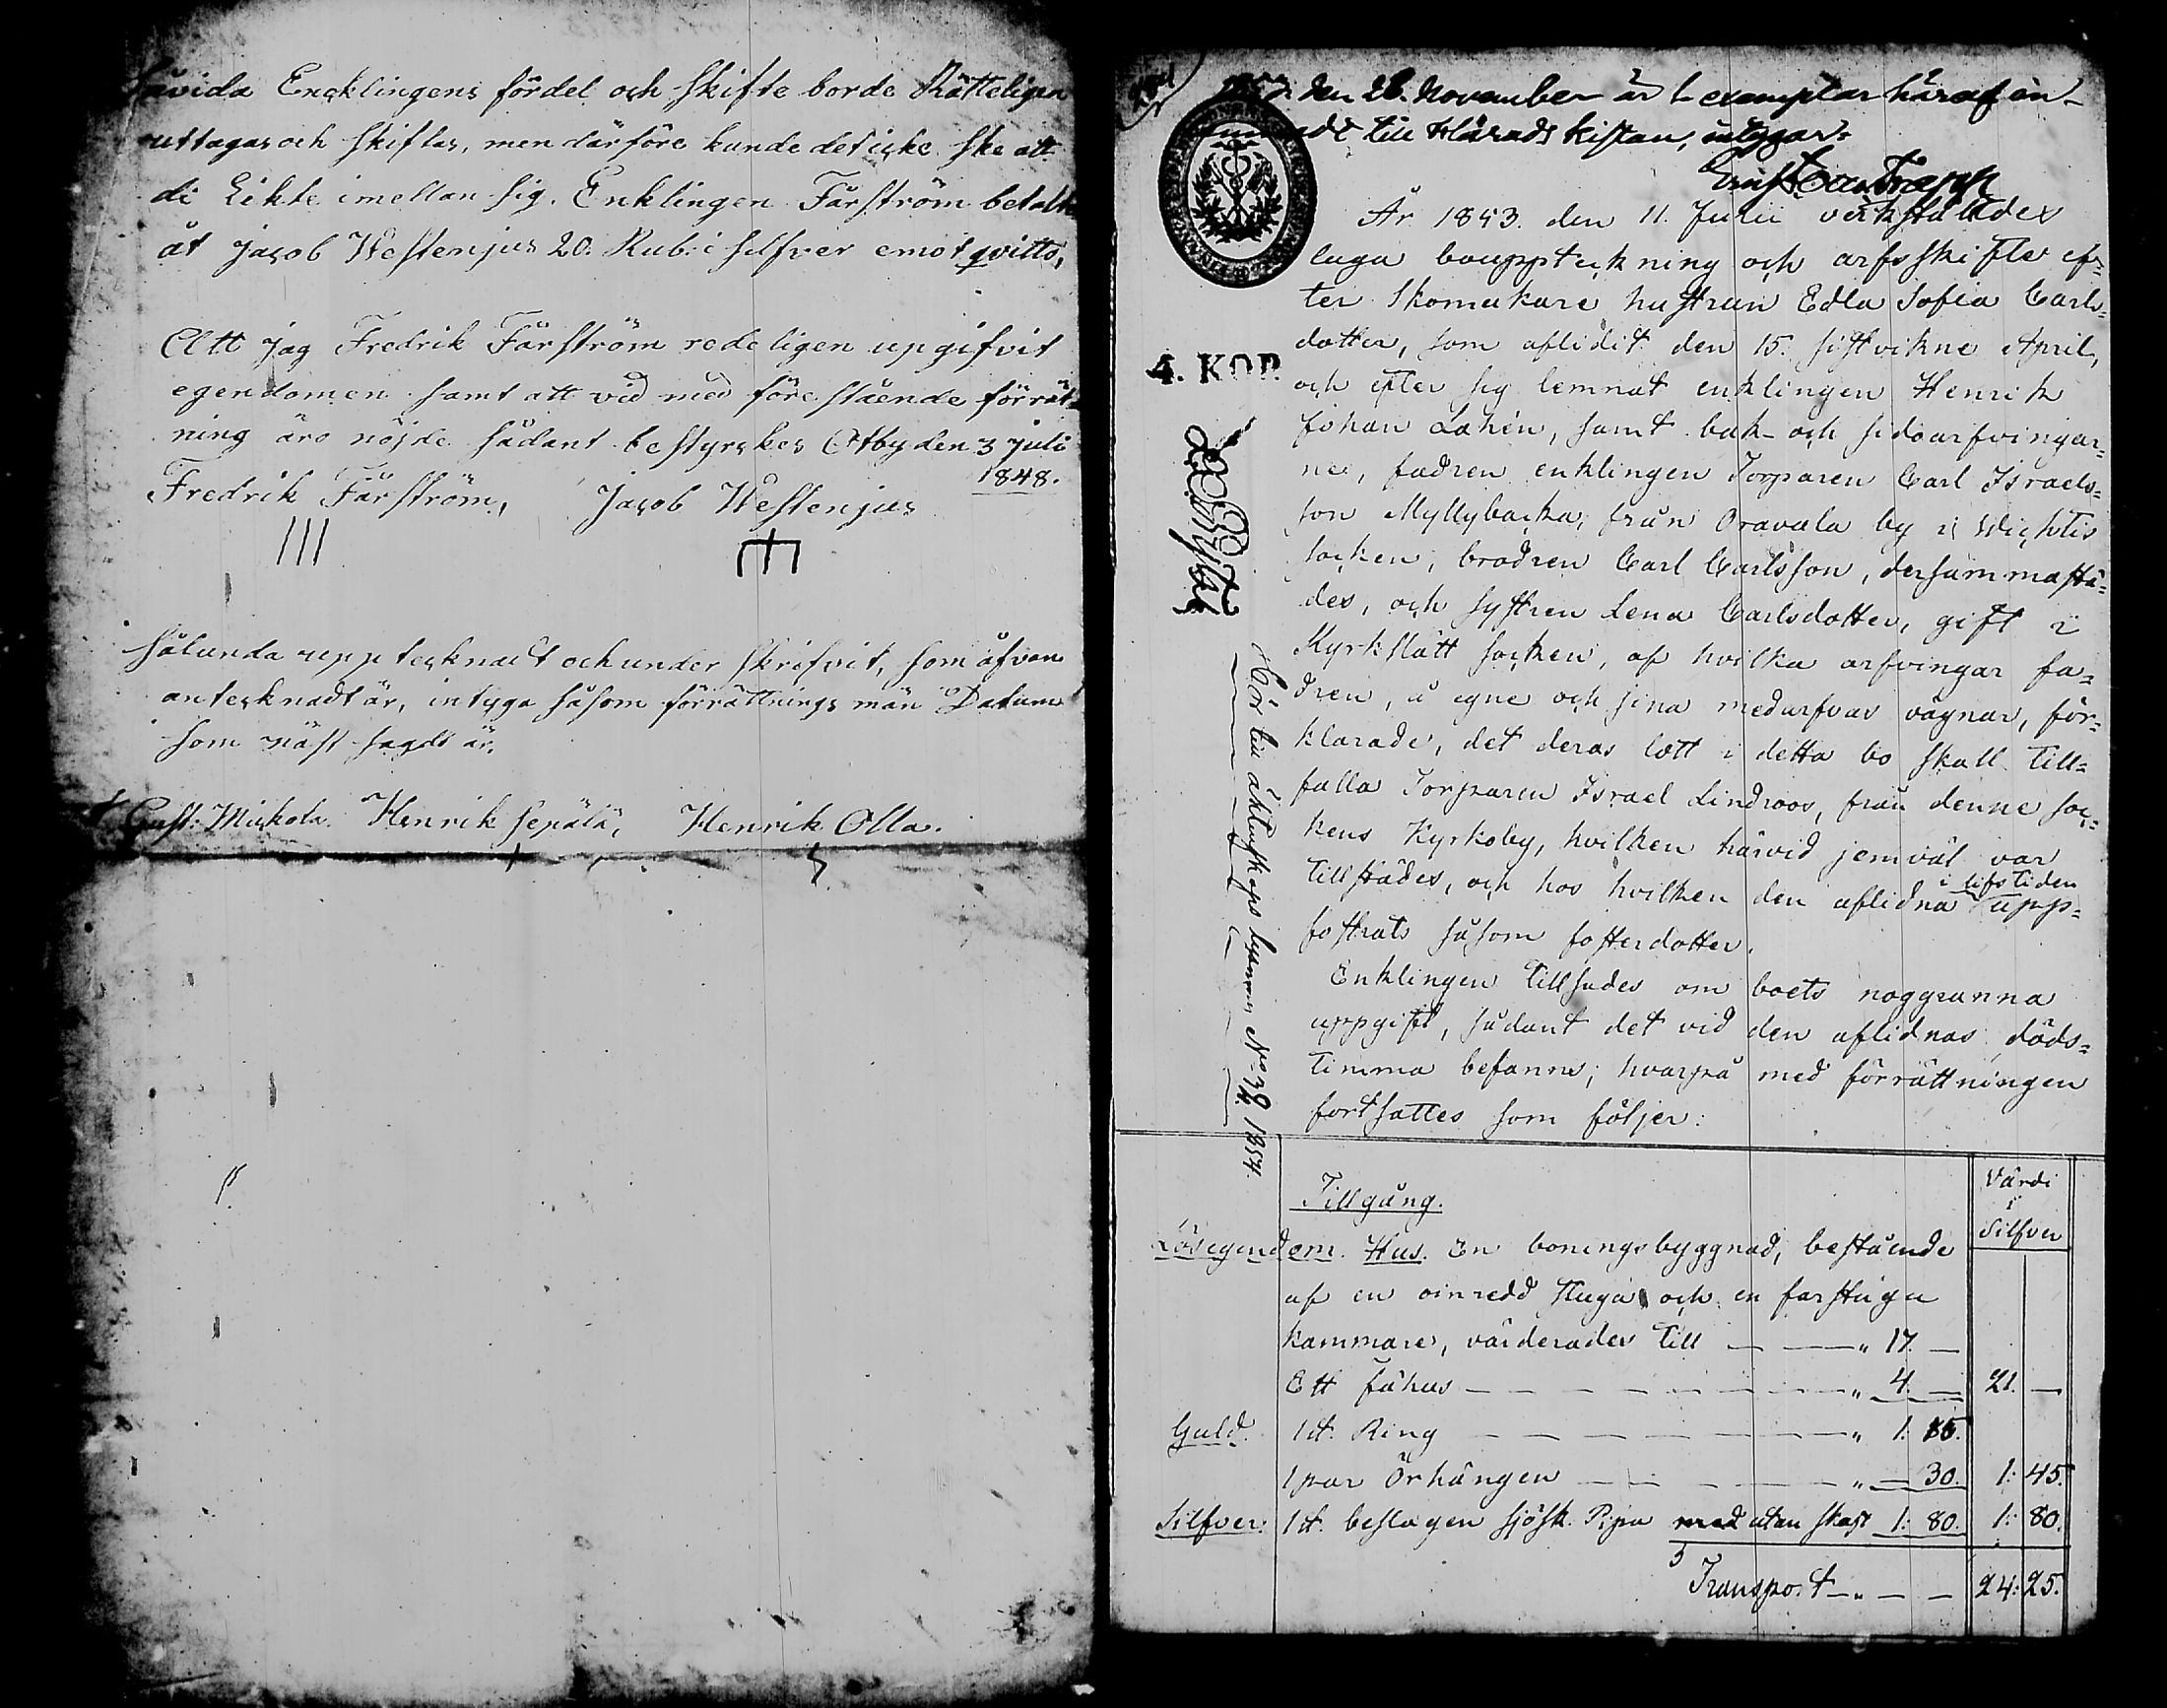 såvida Encklingens fördel och skifte borde Rätteligen
uttagas och skiftas, men därföre kunde det icke ske att
di Likte imellan sig. Enklingen Färström betalte
åt Jacob Westenjus 20. Rub: i silfver emot qvitto,
Att jag Fredrik Färström redeligen upgifvit
egendomen samt att vid med förestående förrät=
ning äro nöjde sådant bestyrckes Otby den 3 juli
1848.
Fredrik Färström, Jacob Westenjus
sålunda upptecknadt och under skrifvit, som åfvan
antecknadt är, intyga såsom förrättnings män Datum
som näst sagdt är.
Gust: Mickola. Henrik Sepälä, Henrik Olla.
den 28. November är 1 exemplar häraf in-
till Härads kistan, intygar:
År 1853. den 11. Julii verkstäldes
laga bouppteckning och arfsskifte ef=
ter Skomakare hustrun Edla Sofia Carls=
dotter, som aflidit den 15. sistvikne April,
och efter sig lemnat enklingen Henrik
Johan Lohén, samt bak- och sidoarfvingar=
ne, fadren enklingen Torparen Carl Israels=
son Myllybacka, från Oravala by i Wichtis
socken, brodren Carl Carlsson, dersammastä=
des, och systren Lena Carlsdotter, gift i
Kyrkslätt socken, af hvilka arfvingar fa=
dren, å egne och sina medarfvas vägnar, för=
klarade, det deras lott i detta bo skall till=
falla Torparen Israel Lindroos, från denne soc=
kens Kyrkoby, hvilken härvid jemväl var
tillstädes, och hos hvilken den aflidna i lifstiden upp=
fostrats såsom fosterdotter.
Enklingen tillsades om boets noggranna
uppgift, sådant det vid den aflidnas döds=
timma befanns; hvarpå med förrättningen
fortsattes som följer:
4. KOP.
Hör till åktenskaps lysnen No 1854.
Tillgång.
Värdi
i
Silfver
Lösegendom. Hus. En boningsbyggnad, bestående
af en oinredd stuga och en farstugu
kammare, värderades till — — " 17. —
Ett fähus — — — — — — — " 4. — 21. —
Guld. 1 st. Ring — — — — — — — " 1: 15.
1 par Örhängen — — — — — " — 30. 1: 45.
Silfver. 1 st. beslagen sjösk. Pipa med utan skaft 1: 80. 1: 80.
Transport — " — — 24: 25.